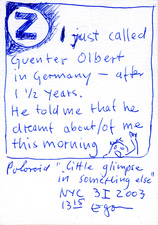 Z
I just called
Guenter Olbert
in Germany – after
1 1/2 years.
He told me that he
dreamt about/of me
this morning
Poloroid "Little glimpse
in something else"
NYC 3 I 2003
13 15